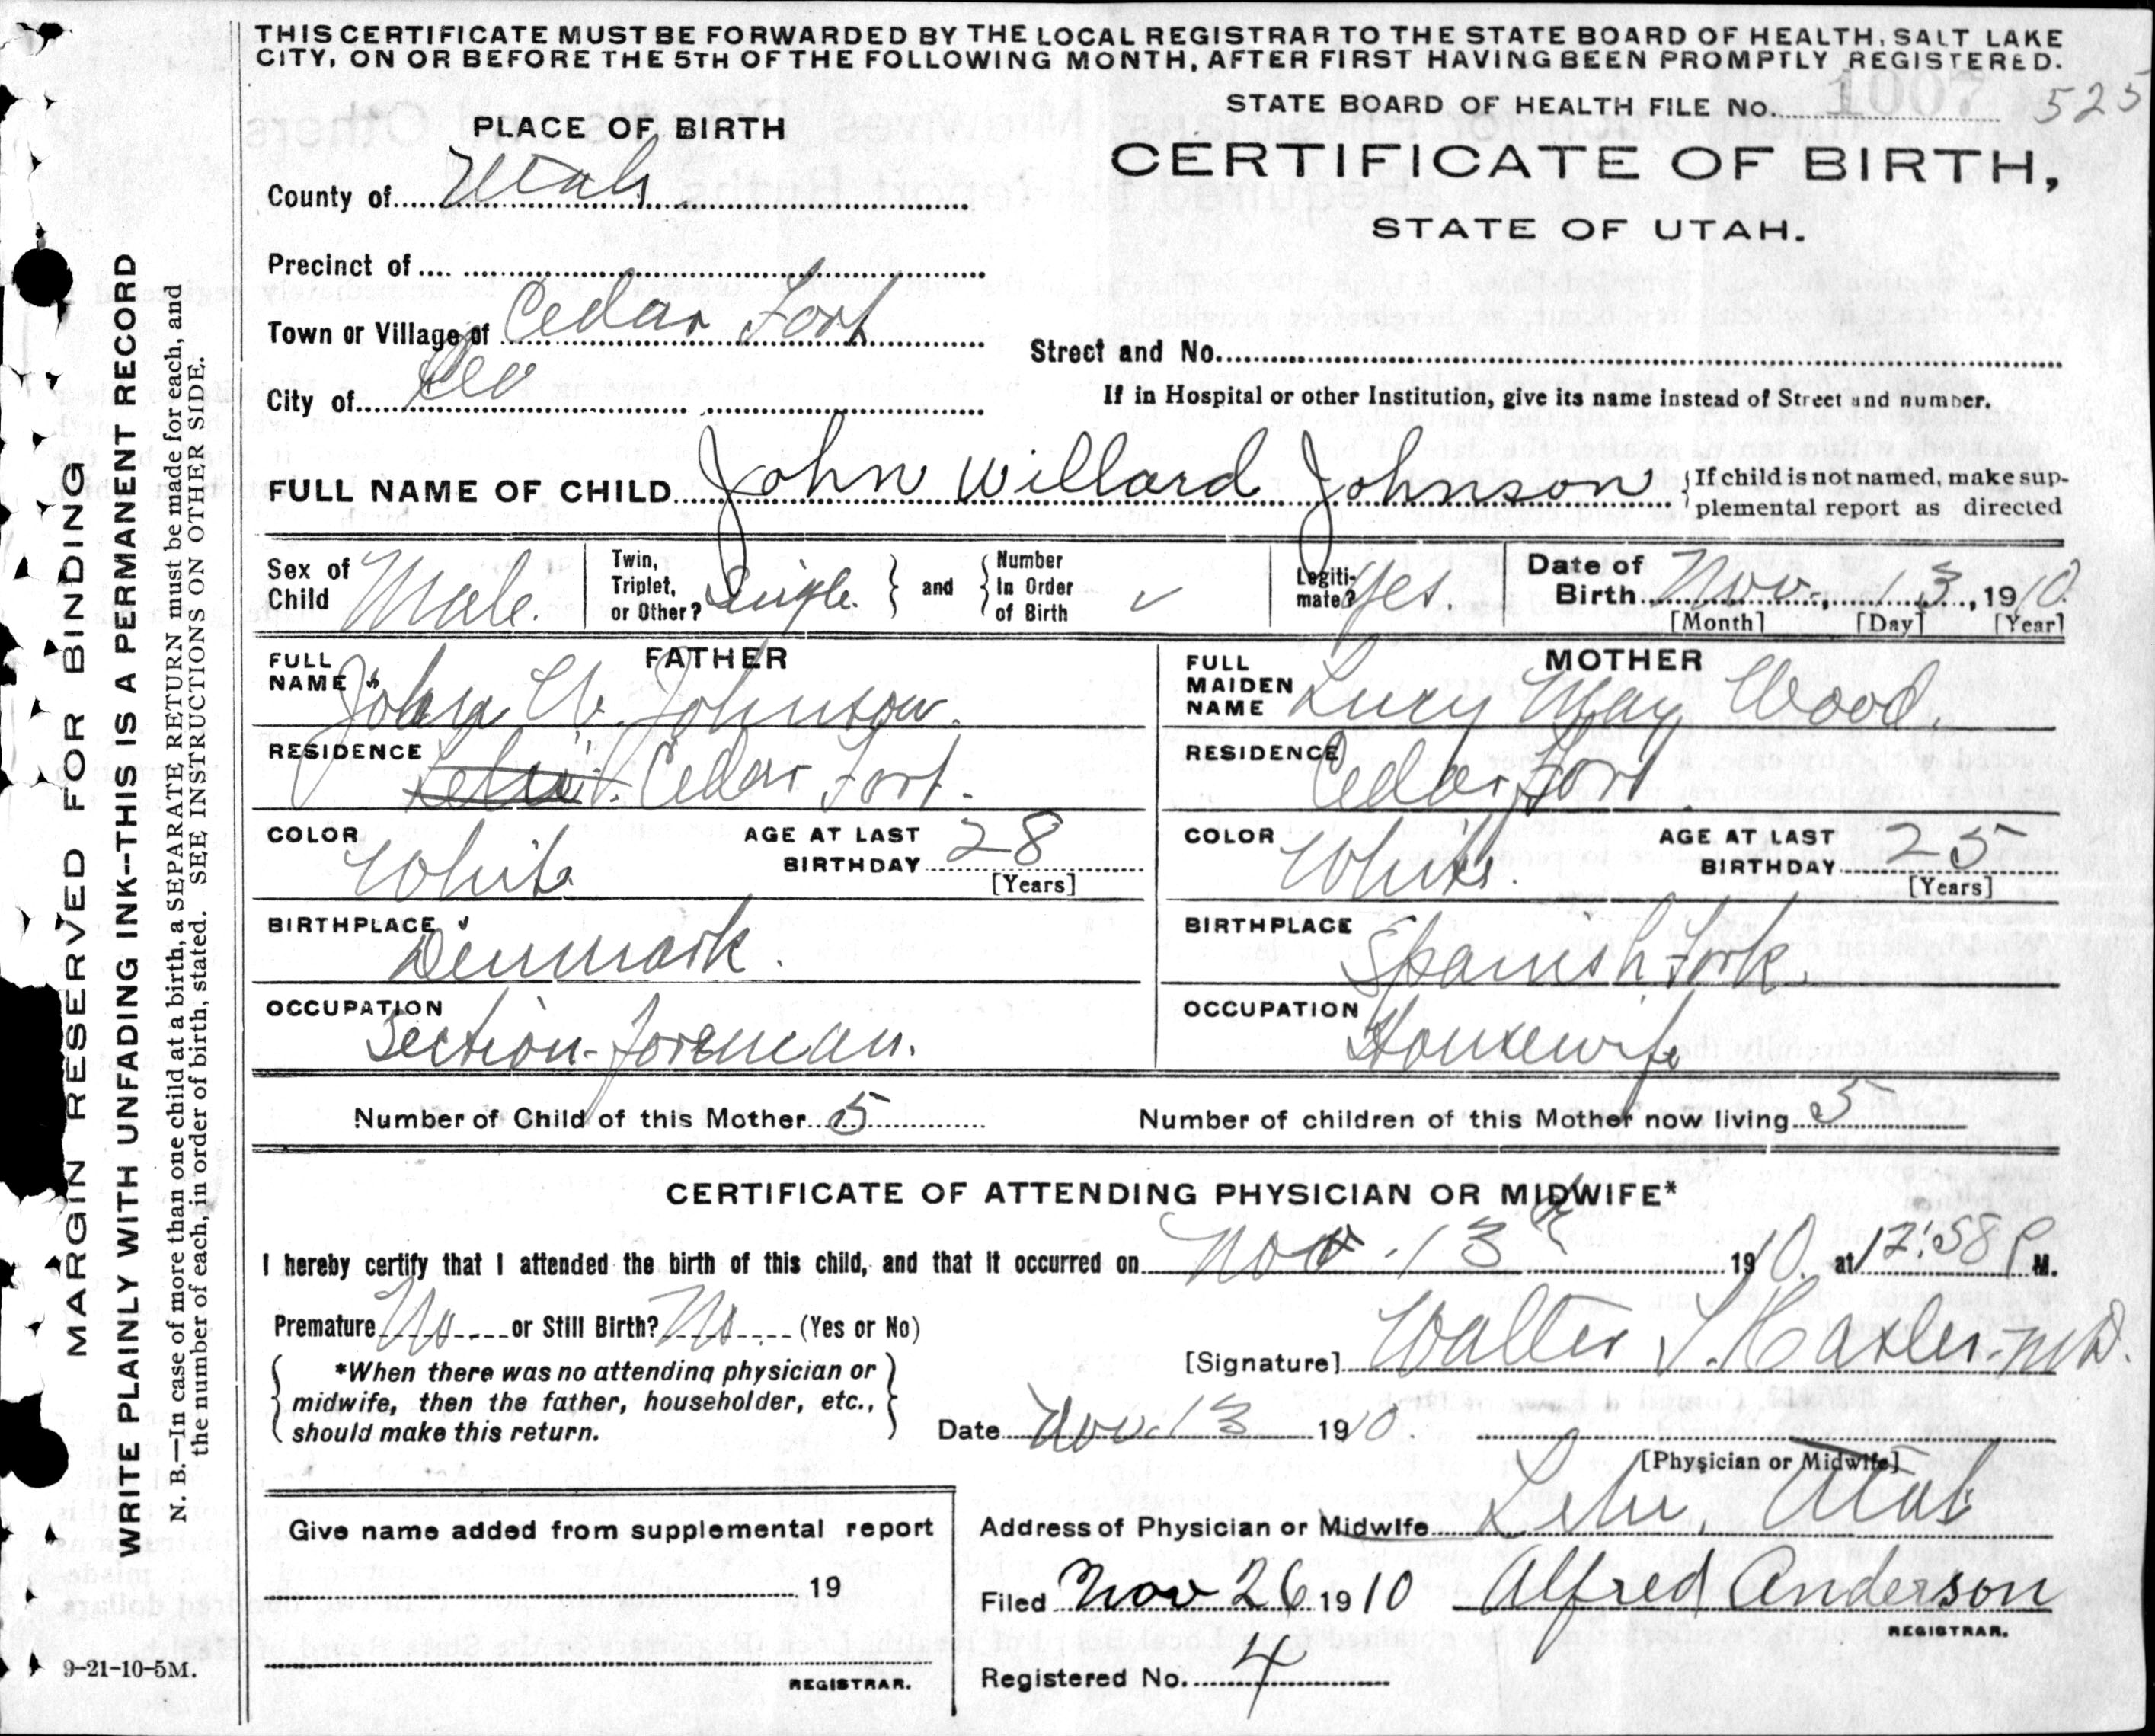 THIS CERTIFICATE MUST BE FORWARDED BY THE LOCAL REGISTRAR TO THE STATE BOARD OF HEALTH, SALT LAKE
CITY, ON OR BEFORE THE 5TH OF THE FOLLOWING MONTH, AFTER FIRST HAVING BEEN PROMPTLY REGISTERED.
STATE BOARD OF HEALTH FILE No. 1007 525
PLACE OF BIRTH
CERTIFICATE OF BIRTH,
STATE OF UTAH.
County of Utah
Precinct of
Town or Village of Cedar Fort
Street and No.
City of
If in Hospital or other Institution, give its name instead of Street and number.
FULL NAME OF CHILD John Willard Johnson {If child is not named, make sup-
plemental report as directed
Sex of Child Male. Twin, Triplet, or Other? Single. } and { Number In Order of Birth ✓ Legiti-mate? Yes. Date of Birth Nov. 13, 1910.
[Month] [Day] [Year]
FATHER
FULL NAME John W. Johnson.
RESIDENCE Cedar Fort.
COLOR White AGE AT LAST BIRTHDAY 28
[Years]
BIRTHPLACE Denmark.
OCCUPATION Section-foreman.
MOTHER
FULL MAIDEN NAME Lucy May Wood.
RESIDENCE Cedar Fort.
COLOR White. AGE AT LAST BIRTHDAY 25
[Years]
BIRTHPLACE Spanish Fork.
OCCUPATION Housewife
Number of Child of this Mother 5 Number of children of this Mother now living 5
CERTIFICATE OF ATTENDING PHYSICIAN OR MIDWIFE*
I hereby certify that I attended the birth of this child, and that it occurred on Nov. 13th 1910. at 12:58 P M.
Premature No or Still Birth? No (Yes or No)
*When there was no attending physician or
midwife, then the father, householder, etc.,
should make this return.
[Signature] Walter M.D.
Date Nov. 13 1910.
[Physician or Midwife]
Address of Physician or Midwife Lehi, Utah
Give name added from supplemental report
19
REGISTRAR.
Filed Nov 26 1910 Alfred Anderson
REGISTRAR.
Registered No. 4
MARGIN RESERVED FOR BINDING
WRITE PLAINLY WITH UNFADING INK--THIS IS A PERMANENT RECORD
N. B.—In case of more than one child at a birth, a SEPARATE RETURN must be made for each, and
the number of each, in order of birth, stated. SEE INSTRUCTIONS ON OTHER SIDE.
9-21-10-5M.